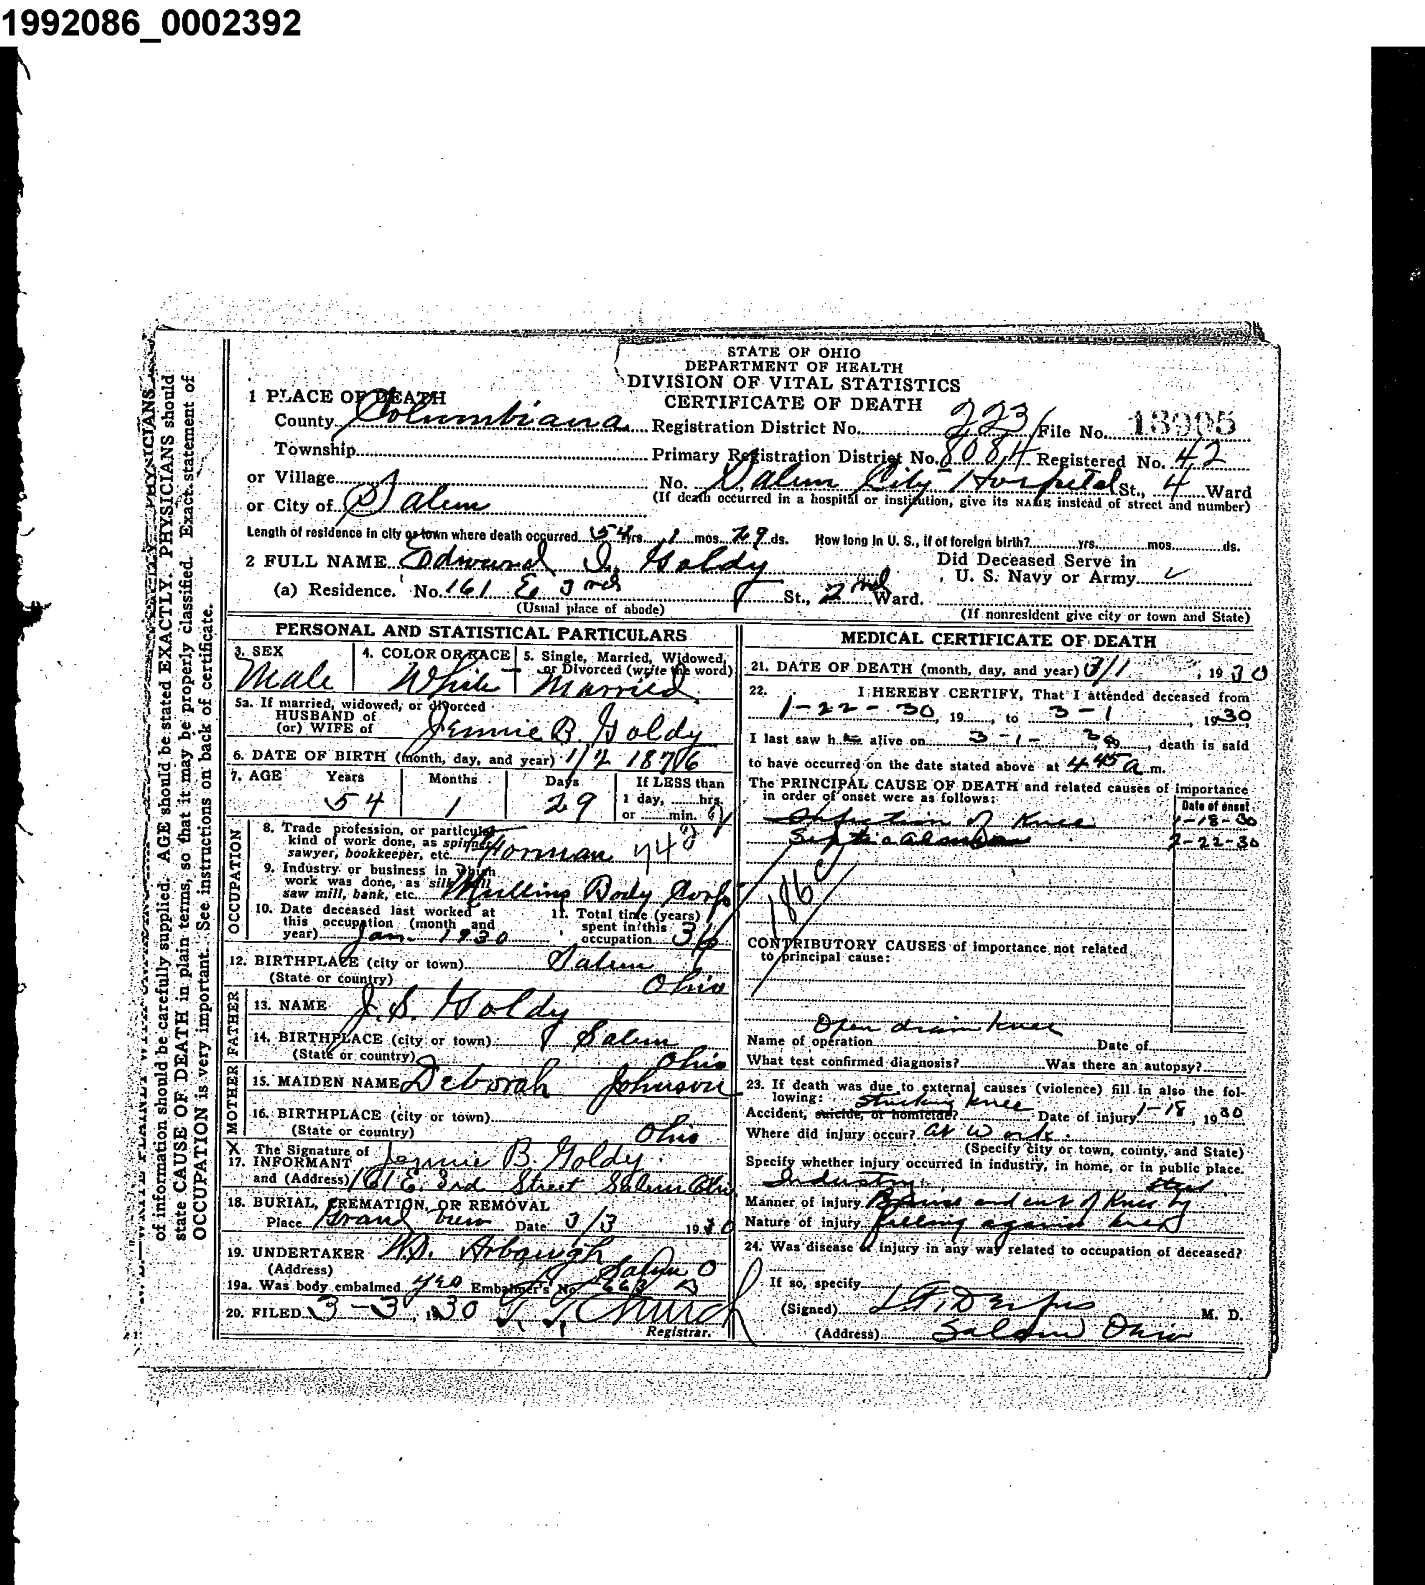 1992086_0002392
STATE OF OHIO
DEPARTMENT OF HEALTH
DIVISION OF VITAL STATISTICS
CERTIFICATE OF DEATH
1 PLACE OF DEATH
County Columbiana Registration District No. 223 File No. 18905
Township Primary Registration District No. 8084 Registered No. 42
or Village No. Salem City Hospital St., 4 Ward
or City of Salem (If death occurred in a hospital or institution, give its NAME instead of street and number)
Length of residence in city or town where death occurred 54 yrs. 1 mos. 29 ds. How long in U. S., if of foreign birth? yrs. mos. ds.
2 FULL NAME Edmund I. Goldy Did Deceased Serve in
U. S. Navy or Army
(a) Residence. No. 161 E. 3rd St., 2nd Ward.
(Usual place of abode) (If nonresident give city or town and State)
PERSONAL AND STATISTICAL PARTICULARS
3. SEX 4. COLOR OR RACE 5. Single, Married, Widowed, or Divorced (write the word)
Male White Married
5a. If married, widowed, or divorced
HUSBAND of
(or) WIFE of Jennie B. Goldy
6. DATE OF BIRTH (month, day, and year) 1/2 1876
7. AGE Years Months Days If LESS than
54 1 29 1 day, hrs.
or min.
OCCUPATION
8. Trade profession, or particular
kind of work done, as spinner,
sawyer, bookkeeper, etc. Forman
9. Industry or business in which
work was done, as silk mill,
saw mill, bank, etc. Mullins Body Corp
10. Date deceased last worked at
this occupation (month and
year) Jan. 1930
11. Total time (years)
spent in this
occupation 36
12. BIRTHPLACE (city or town) Salem
(State or country) Ohio
FATHER
13. NAME J. S. Goldy
14. BIRTHPLACE (city or town) Salem
(State or country) Ohio
MOTHER
15. MAIDEN NAME Deborah Johnson
16. BIRTHPLACE (city or town)
(State or country) Ohio
X The Signature of
17. INFORMANT Jennie B. Goldy
and (Address) 161 E. 3rd Street Salem Ohio
18. BURIAL, CREMATION, OR REMOVAL
Place Grand view Date 3/3 1930
19. UNDERTAKER W.D. Arbaugh
(Address) Salem O
19a. Was body embalmed yes Embalmer's No.
20. FILED 3-3, 1930 Church
Registrar.
MEDICAL CERTIFICATE OF DEATH
21. DATE OF DEATH (month, day, and year) 3/1, 1930
22. I HEREBY CERTIFY, That I attended deceased from
1-22-30 19 , to 3-1, 1930
I last saw h alive on 3-1- 30, death is said
to have occurred on the date stated above at 4 45 a.m.
The PRINCIPAL CAUSE OF DEATH and related causes of importance
in order of onset were as follows:
Date of onset
Infection of Knee 1-18-30
2-22-30
CONTRIBUTORY CAUSES of importance not related
to principal cause:
Open drain knee
Name of operation Date of
What test confirmed diagnosis? Was there an autopsy?
23. If death was due to external causes (violence) fill in also the following:
Striking knee
Accident, suicide, or homicide? Date of injury 1-18, 1930
Where did injury occur? at Work.
(Specify city or town, county, and State)
Specify whether injury occurred in industry, in home, or in public place.
Industry steel
Manner of injury Bruise and cut of Knee by
Nature of injury falling against
24. Was disease or injury in any way related to occupation of deceased?
If so, specify
(Signed) M. D.
(Address) Salem Ohio
of information should be carefully supplied. AGE should be stated EXACTLY. PHYSICIANS should
state CAUSE OF DEATH in plain terms, so that it may be properly classified. Exact statement of
OCCUPATION is very important. See instructions on back of certificate.